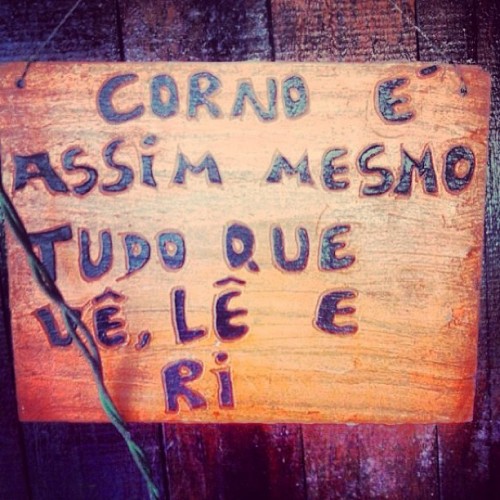 CORNO É
ASSIM MESMO
TUDO QUE
VÊ, LÊ E
Ri